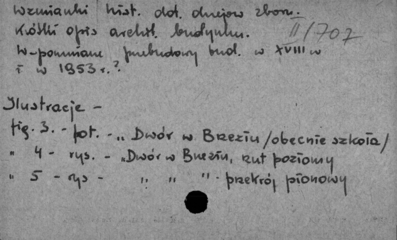 Wzmianki hist. dot. dziejów zboru.
Krótki opis archit. budynku. II/707
Wspomniane przebudowy bud. w XVIII w
i w 1953 r.?
Ilustracje -
fig. 3. - fot. - „ Dwór w Brzeziu /obecnie szkoła/
" 4 - rys. - „Dwór w Brzeziu, rzut poziomy
" 5 - rys - " " " - przekrój pionowy